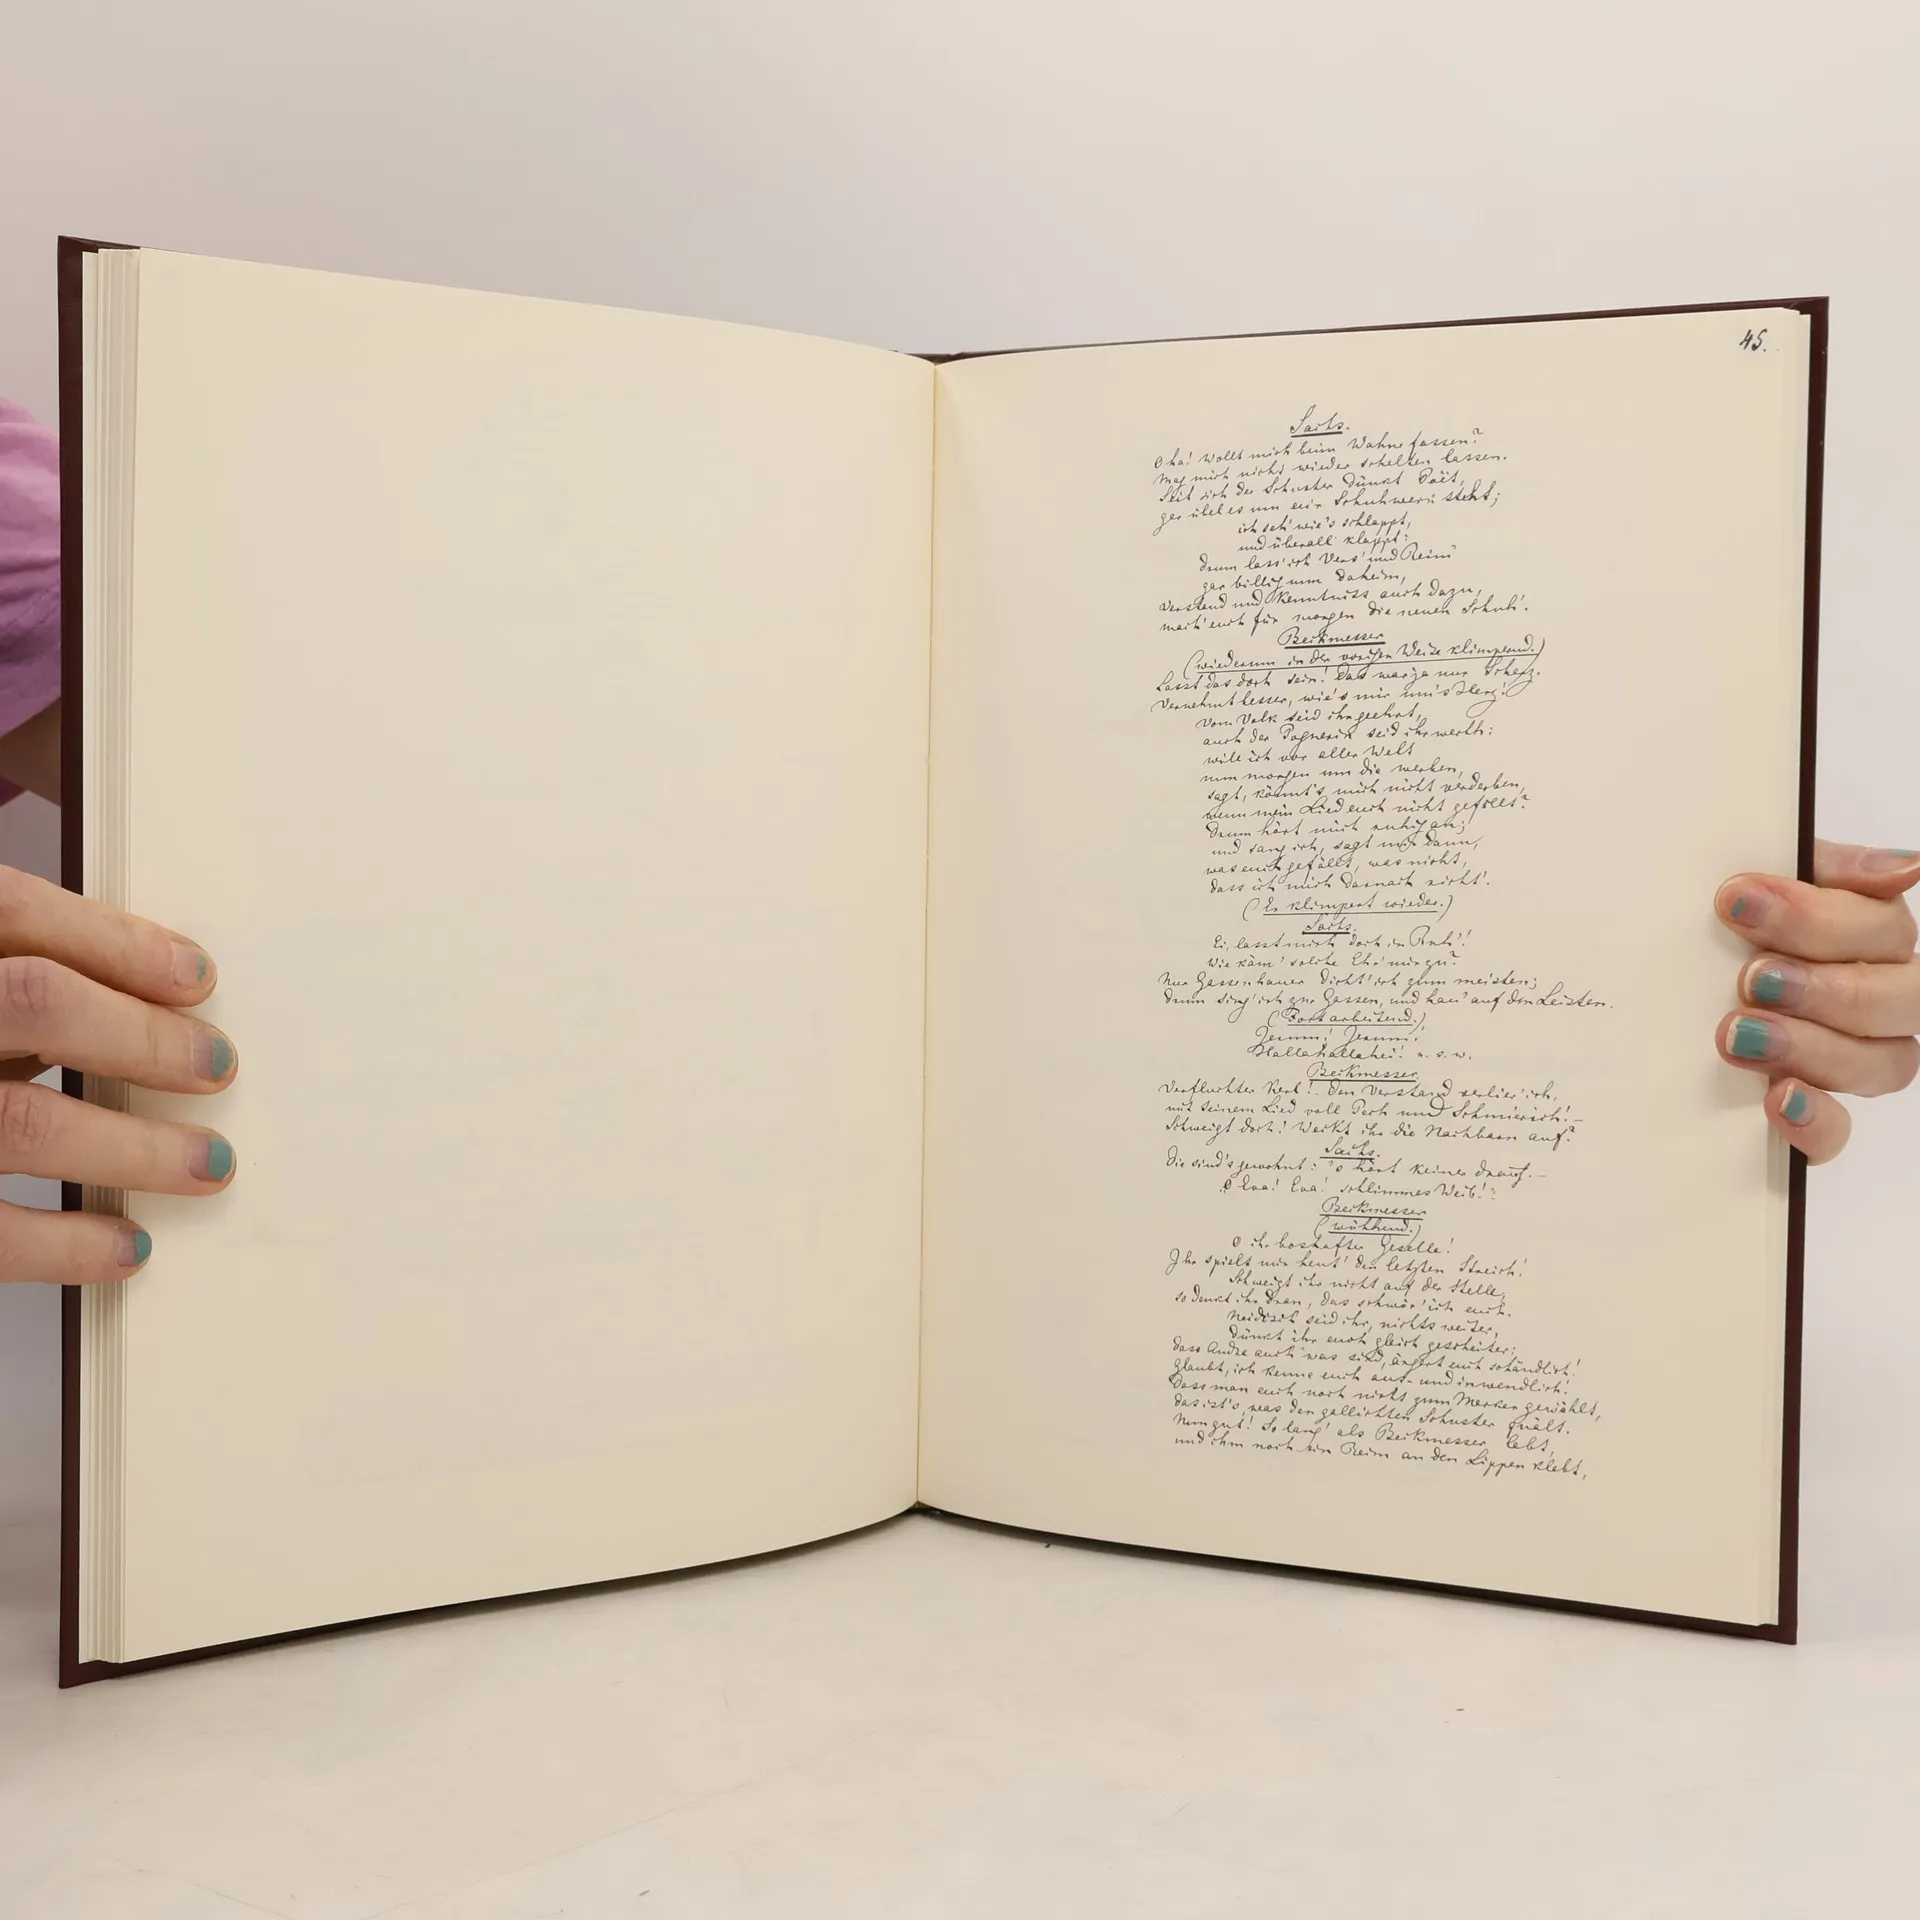 45.
Sachs.
Oha! Wollt mich beim Wahne fassen?
Mag mich nicht wieder schelten lassen.
Seit sich der Schuster dünkt Poët,
gar übel es um eu'r Schuhwerk steht;
ich seh' wie's schlappt,
und überall klappt:
drum lass' ich Vers' und Reim'
gar billig nun daheim,
Verstand und Kenntniss auch dazu,
mach' euch für morgen die neuen Schuh'.
Beckmesser
(wiederum in der vorigen Weise klimpernd.)
Lasst das doch sein! Das war ja nur Scherz.
Vernehmt besser, wie's mir um's Herz!
Vom Volk seid ihr geehrt,
auch der Pognerin seid ihr werth:
will ich vor aller Welt
nun morgen um die werben,
sagt, könnt's mich nicht verderben,
wenn mein Lied euch nicht gefällt?
Drum hört mich ruhig an;
und sang ich, sagt mir dann,
was euch gefällt, was nicht,
dass ich mich darnach richt'.
(Er klimpert wieder.)
Sachs.
Ei, lasst mich doch in Ruh'!
Wie käm' solche Ehr' mir zu?
Nur Gassenhauer dicht' ich zum meisten;
drum sing' ich zur Gassen, und hau' auf den Leisten.
(Fortarbeitend.)
Jerum! Jerum!
Hallahallohei! u. s. w.
Beckmesser.
Verfluchter Kerl! – Den Verstand verlier' ich,
mit seinem Lied voll Pech und Schmierich! –
Schweigt doch! Weckt ihr die Nachbarn auf?
Sachs.
Die sind's gewohnt: 's hört keiner drauf. –
„O Eva! Eva! schlimmes Weib!"
Beckmesser
(wüthend.)
O ihr boshafter Geselle!
Ihr spielt mir heut' den letzten Streich!
Schweigt ihr nicht auf der Stelle,
so denkt ihr dran, das schwör' ich euch.
Neidisch seid ihr, nichts weiter,
dünkt ihr euch gleich gescheiter:
dass Andre auch was sind, ärgert euch schändlich!
Glaubt, ich kenne euch aus- und inwendlich!
Dass man euch noch nicht zum Merker gewählt,
das ist's, was den gallichten Schuster quält.
Nun gut! So lang' als Beckmesser lebt,
und ihm noch ein Reim an den Lippen klebt,